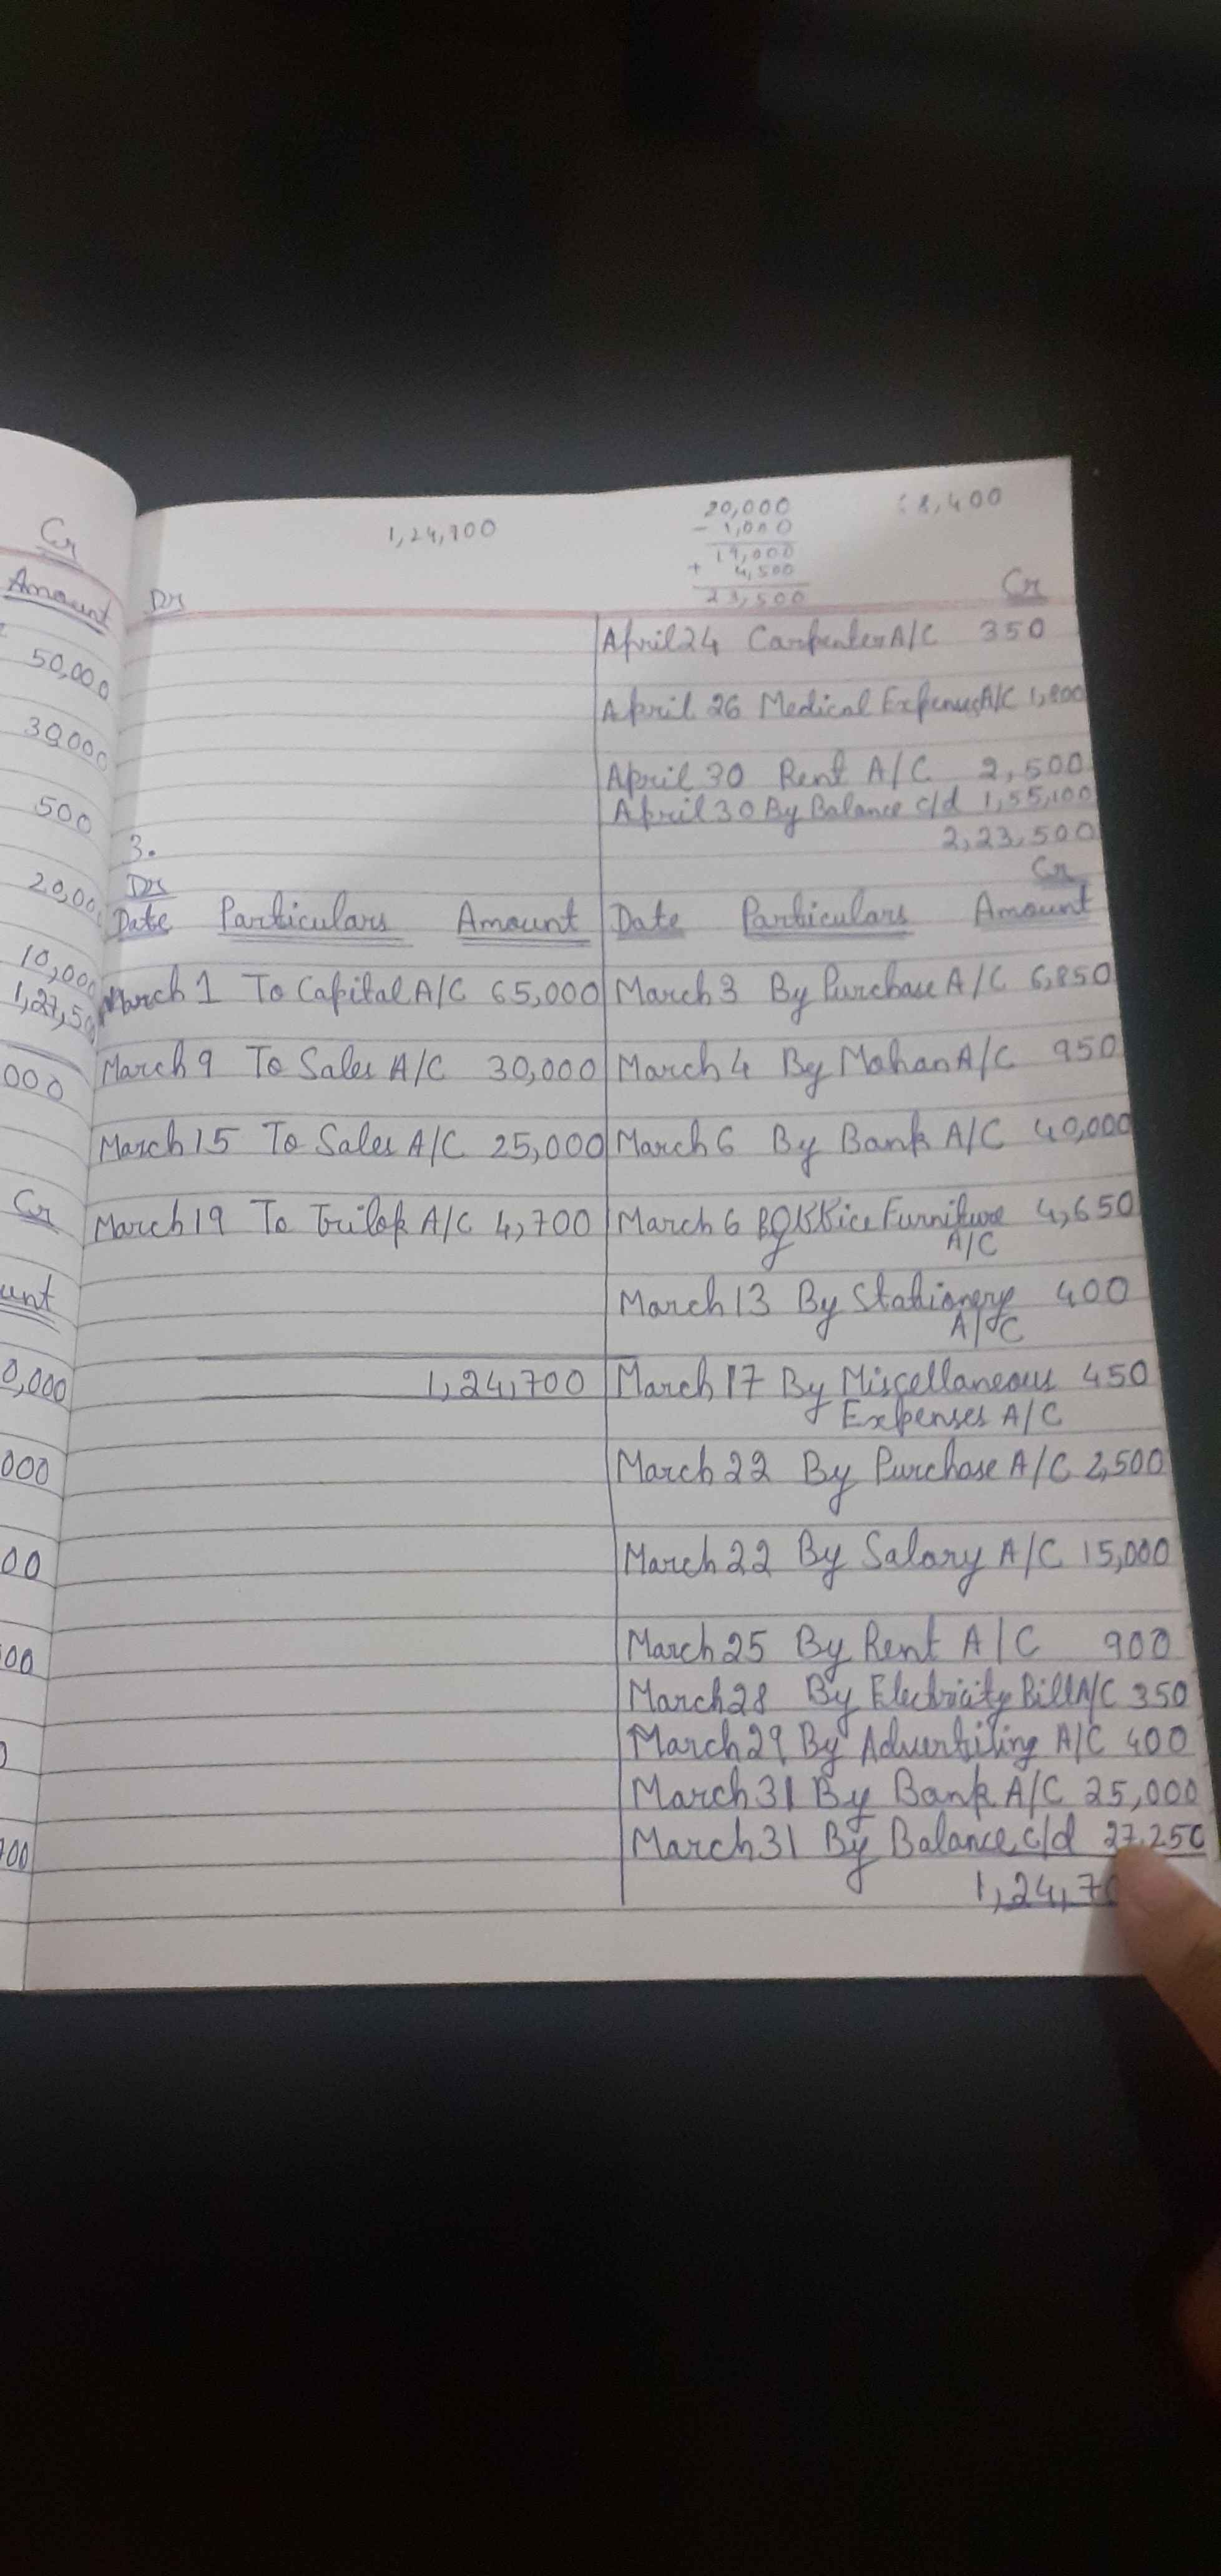 Cr
Amount
50,000
30,000
500
20,00
10,000
1,27,5
000
Cr
unt
0,000
000
00
00
00
1,24,700
20,000
- 1,000
19,000
+ 4,500
23,500
8,400
Dr
Cr
April 24 Carpenter A/C 350
April 26 Medical Expenses A/C 1,800
April 30 Rent A/C 2,500
April 30 By Balance c/d 1,55,100
2,23,500
3.
Dr
Cr
Date Particulars Amount Date Particulars Amount
March 1 To Capital A/C 65,000 March 3 By Purchase A/C 6,850
March 9 To Sales A/C 30,000 March 4 By Mohan A/C 950
March 15 To Sales A/C 25,000 March 6 By Bank A/C 40,000
March 19 To Trilok A/C 4,700 March 6 Furniture 4,650
A/C
March 13 By Stationery 400
A/C
1,24,700 March 17 By Miscellaneous 450
Expenses A/C
March 22 By Purchase A/C 2,500
March 22 By Salary A/C 15,000
March 25 By Rent A/C 900
March 28 By Electricity Bill A/C 350
March 29 By Advertiting A/C 400
March 31 By Bank A/C 25,000
March 31 By Balance c/d 27,250
1,24,7